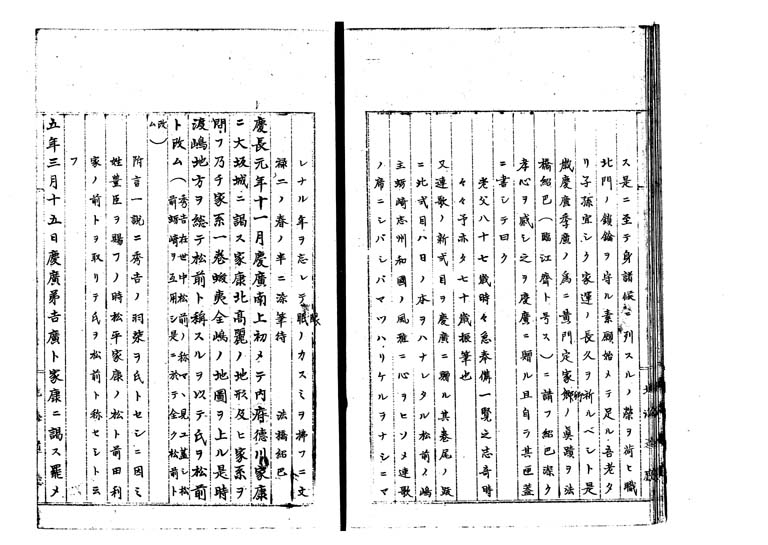 ス是ニ至テ身諸候ニ列スルノ榮ヲ荷ヒ職
北門ノ鎖鑰ヲ守ル素願始メテ足ル吾老タ
リ子孫宜シク家運ノ長久ヲ祈ルベシト是
歳慶廣季廣ノ爲ニ黄門定家卿ノ真蹟ヲ法
卿
橋紹巴(臨江齋ト号ス)ニ請フ紹巴深ク
孝心ヲ感シ之ヲ慶廣ニ贈ル且自ラ其匣蓋
ニ書シテ曰ク
老父八十七歳時々急奉備一覧之志奇特
々々予亦タ七十歳振筆也
又連歌ノ新式目ヲ慶廣ニ贈ル其巻尾ノ跋
ニ北式目ハ日ノ本ヲハナレタル松前ノ嶋
主蛎崎志州和國ノ風雅ニ心ヲヒソメ連歌
ノ席ニシバシバマツハリケルヲナシニマ
レナル年ヲ忘レテ眼ノカスミヲ拂フニ文
眼
禄二ノ春ノ半ニ染筆待 法橋紹巴
慶長元年十一月慶廣南上初メテ内府徳川家康
ニ大坂城ニ謁ス家康北高麗ノ地形及ヒ家系ヲ
問フ乃チ家系一巻蝦夷全嶋ノ地圖ヲ上ル是時
渡嶋地方ヲ総テ松前ト稱スルヲ以テ氏ヲ松前
ト改ム(秀吉在世中松前ノ称マヽ見ユ蓋シ松
前蛎崎ヲ互用シ是ニ於テ全ク松前ト
改ム)
附言一説ニ秀吉ノ羽柴ヲ氏トセシニ因ミ
姓豊臣ヲ賜フノ時松平家康ノ松ト前田利
家ノ前トヲ取リテ氏ヲ松前ト称セシト云
フ
五年三月十五日慶廣弟吉廣ト家康ニ謁ス羅メ